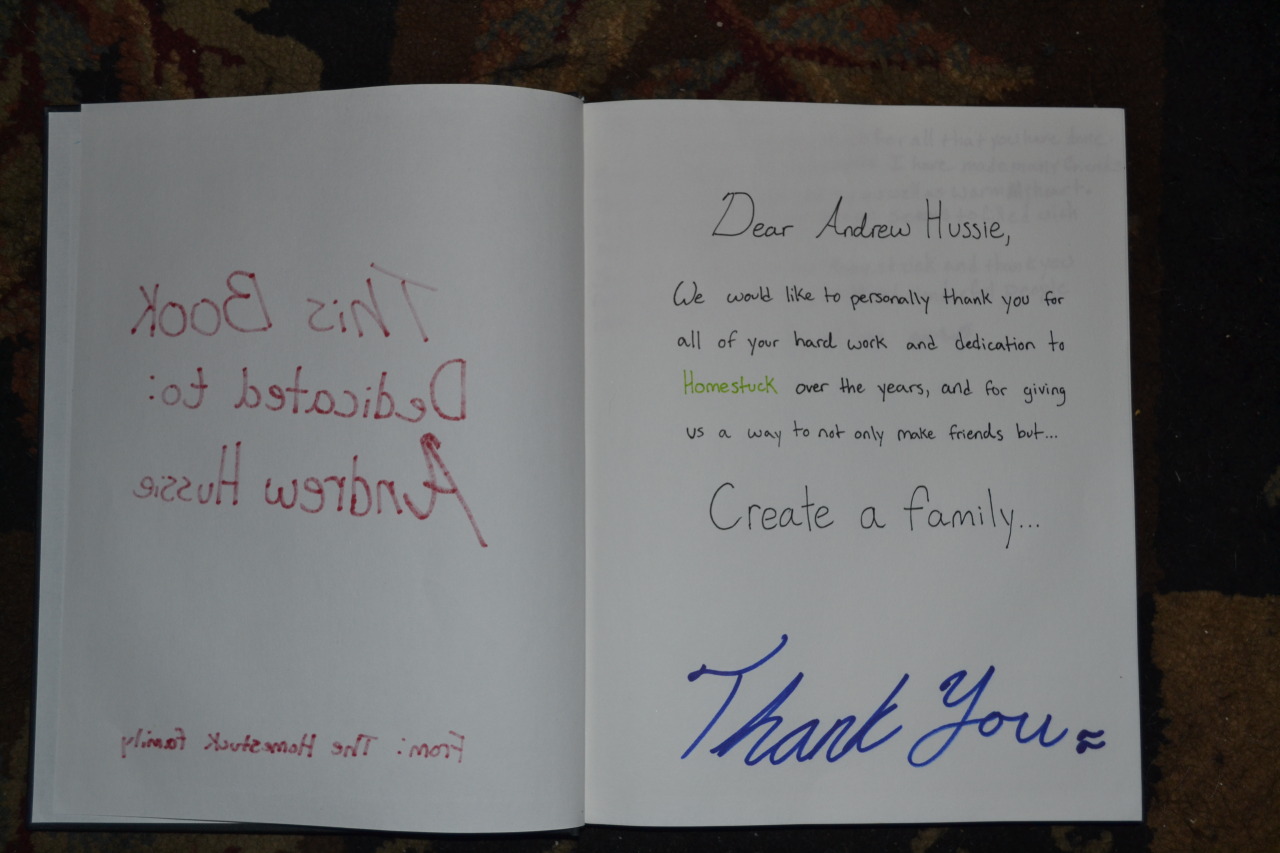 This Book
Dedicated to:
Andrew Hussie
From: The Homestuck family
Dear Andrew Hussie,
We would like to personally thank you for
all of your hard work and dedication to
Homestuck over the years, and for giving
us a way to not only make friends but...
Create a family...
Thank You
all that you have done
I have made many friends